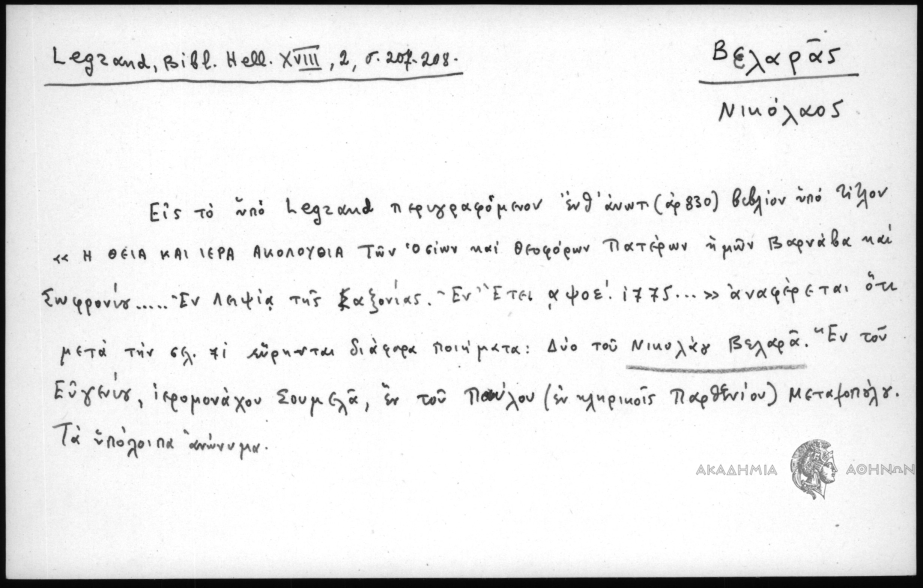 Legrand, Bibl. Hell. XVIII, 2, σ. 207-208.
Βελαρᾶς
Νικόλαος
Εἰς τὸ ὑπὸ Legrand περιγραφόμενον ἐνθ' ἀνωτ (ἀρ 830) βιβλίον ὑπό τίτλον
« Η ΘΕΙΑ ΚΑΙ ΙΕΡΑ ΑΚΟΛΟΥΘΙΑ Τῶν Ὁσίων καί Θεοφόρων Πατέρων ἡμῶν Βαρνάβα καί
Σωφρονίου..... Ἐν Λειψίᾳ τῆς Σαξονίας. Ἐν Ἔτει ͵αψοε΄. 1775... » ἀναφέρεται ὅτι
μετά τήν σελ. 71 εὕρηνται διάφορα ποιήματα: Δύο τοῦ Νικολάου Βελαρᾶ. Ἐν τοῦ
Εὐγενίου, ἱερομονάχου Σουμελᾶ, ἐν τοῦ Παύλου (ἐν κληρικοῖς Παρθενίου) Μεταξοπούλου.
Τά ὑπόλοιπα ἀνώνυμα.
ΑΚΑΔΗΜΙΑ ΑΘΗΝΩΝ